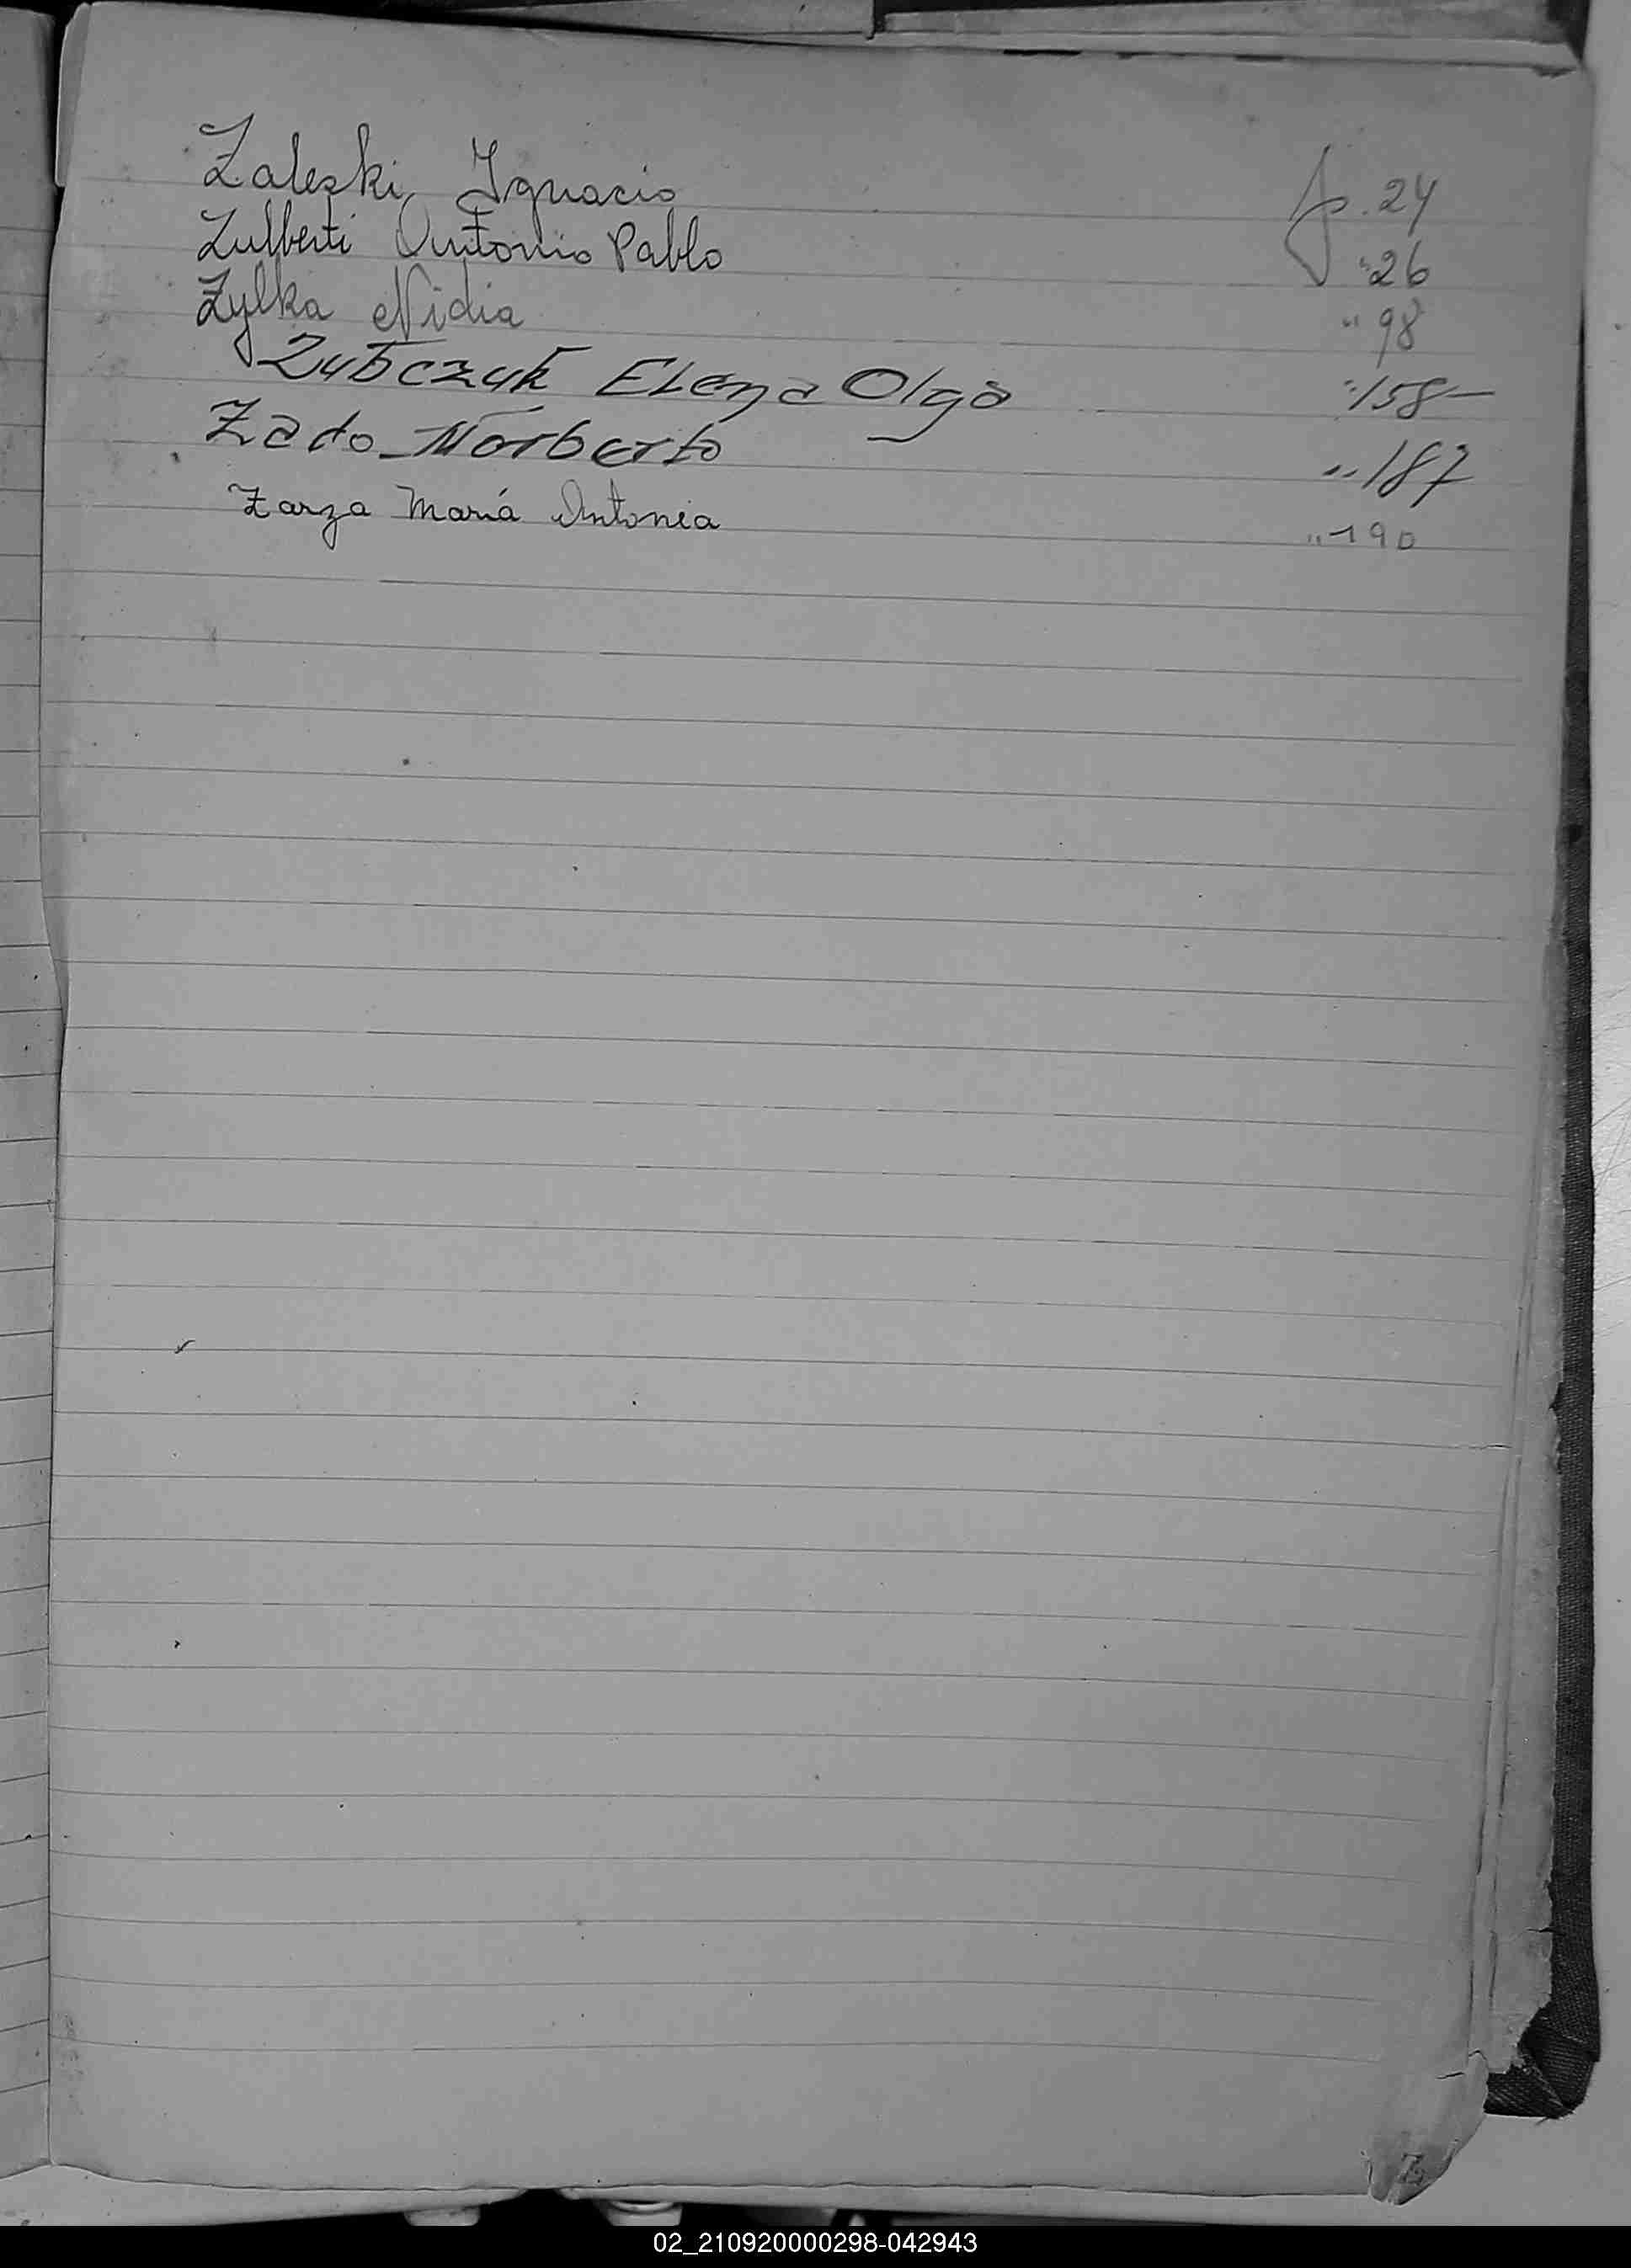 Zaleski, Ignacio fp. 24
Zulberti Antonio Pablo "26
Zylka Nidia " 98
Zubczuk Elena Olga "158-
Zado Norberto " 187
Zarza María Antonia " 190
Z
02_210920000298-042943